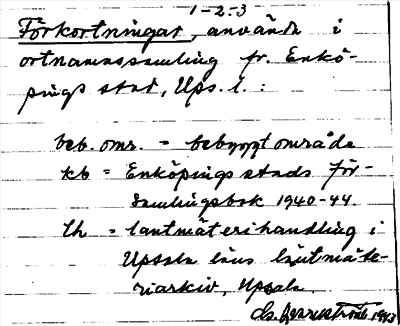 1-2-3
Förkortningar, använda i
ortnamnssamling fr. Enkö-
pings stad, Ups. l. :
beb. omr. = bebyggt område
kb = Enköpings stads för-
samlingsbok 1940-44.
lh = lantmäterihandling i
Upsala läns lantmäte-
riarkiv, Upsala.
1943